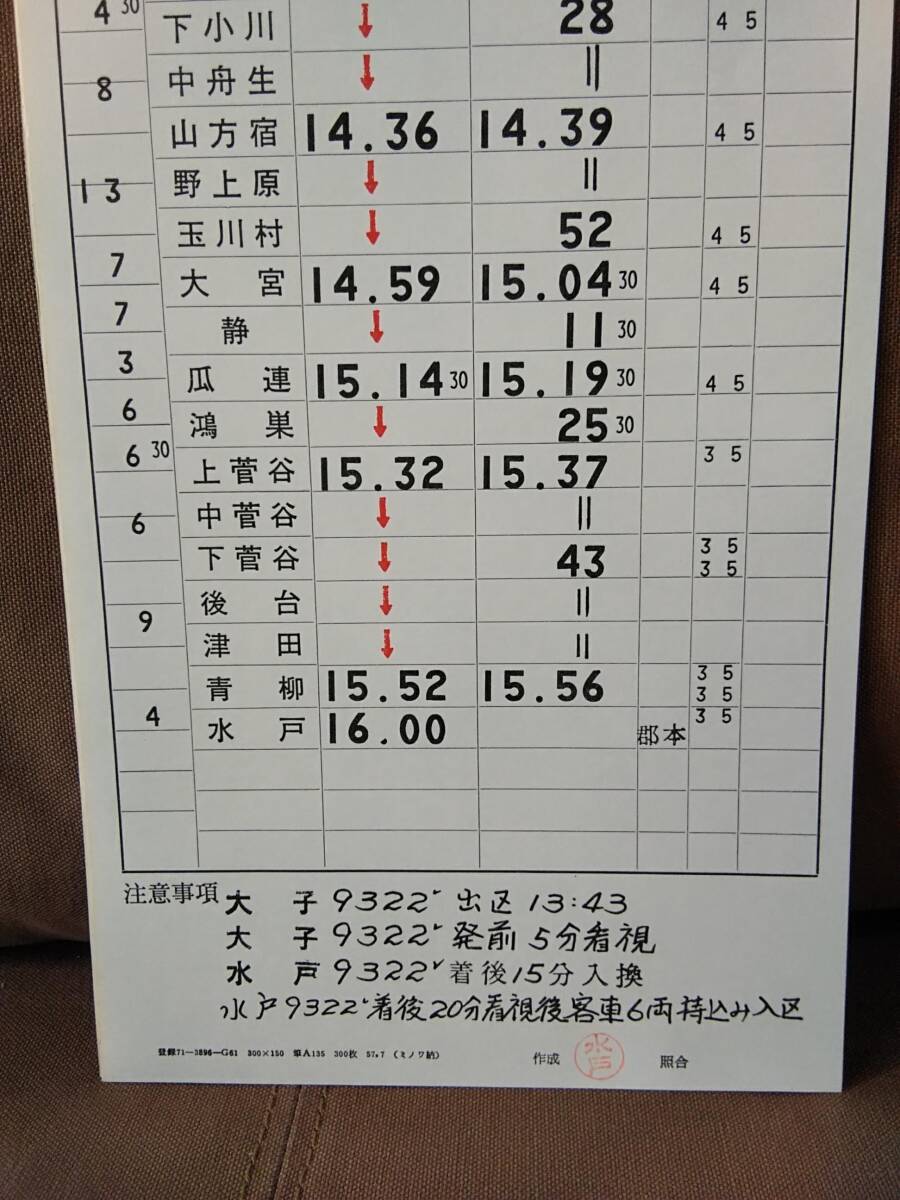 4 30 下小川 ↓ 28 4 5
8 中舟生 ↓ ||
山方宿 14.36 14.39 4 5
13 野上原 ↓ ||
玉川村 ↓ 52 4 5
7 大宮 14.59 15.04 30 4 5
7 静 ↓ 11 30
3 瓜連 15.14 30 15.19 30 4 5
6 鴻巣 ↓ 25 30
6 30 上菅谷 15.32 15.37 3 5
6 中菅谷 ↓ ||
下菅谷 ↓ 43 3 5
3 5
9 後台 ↓ ||
津田 ↓ ||
青柳 15.52 15.56 3 5
3 5
4 水戸 16.00 郡本 3 5
注意事項 大子 9322レ 出区 13:43
大子 9322レ 発前 5分看視
水戸 9322レ 着後15分入換
水戸9322レ着後20分看視後客車6両持込み入区
登録71-3896-G61 300×150 単A135 300枚 57.7 (ミノワ納) 作成 水戸 照合